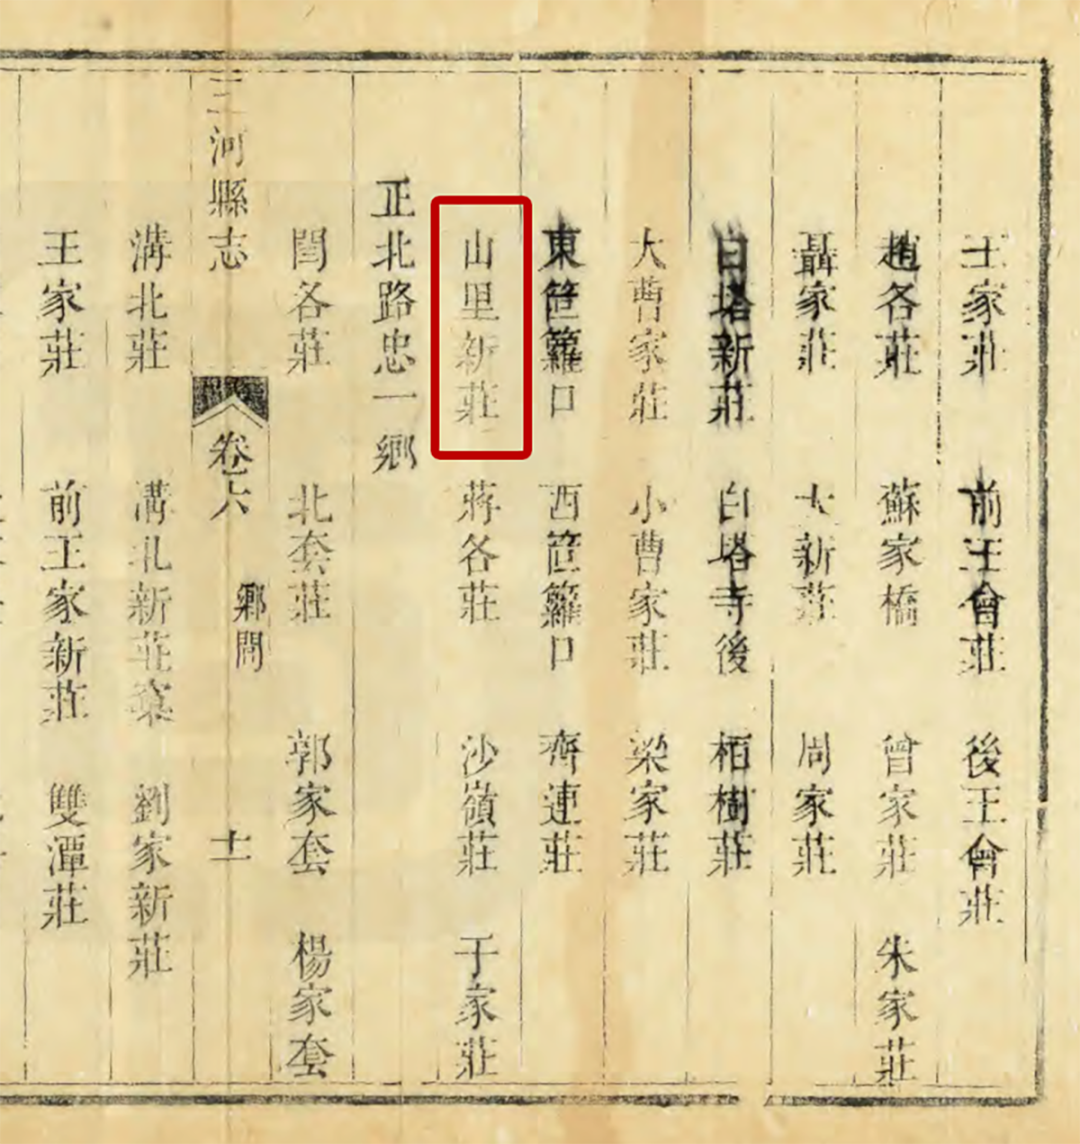 王家莊 前王會莊 後王會莊
趙各莊 蘇家橋 曾家莊 朱家莊
聶家莊 大新莊 周家莊
白塔新莊 白塔寺後 栢樹莊
大曹家莊 小曹家莊 梁家莊
東笸籮口 西笸籮口 齊連莊
山里新莊 蔣各莊 沙嶺莊 于家莊
正北路忠一鄉
閆各莊 北套莊 郭家套 楊家套
三河縣志 卷六 鄉閭 十一
溝北莊 溝北新莊窠 劉家新莊
王家莊 前王家新莊 雙潭莊